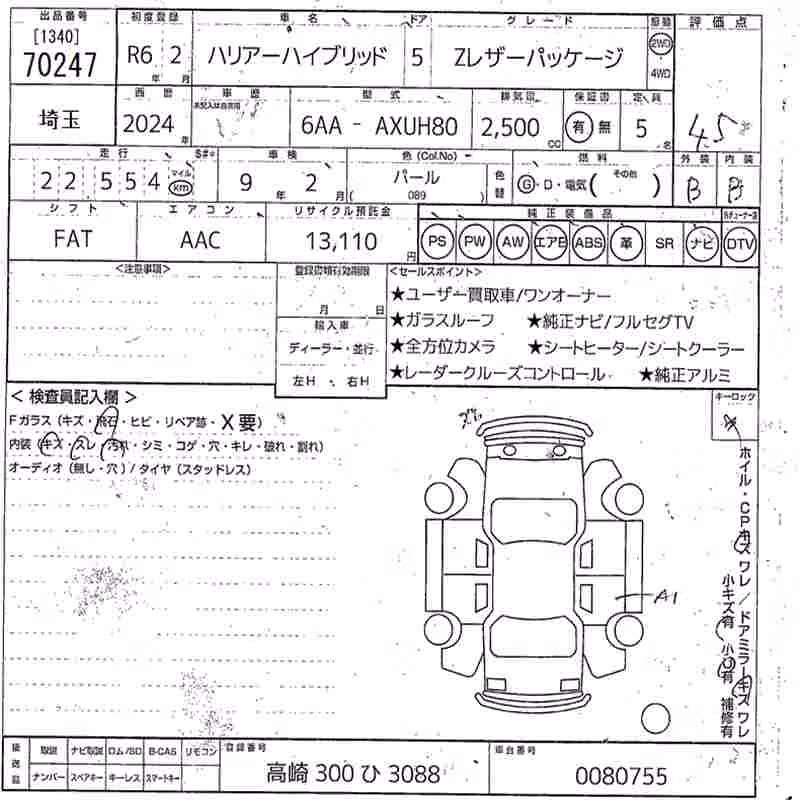 出品番号 初度登録 車名 ドア グレード 駆動 評価点
[1340]
70247 R6 2 ハリアーハイブリッド 5 Zレザーパッケージ 2WD
年 月 4WD
西暦 車歴 型式 排気量 保証書 定員
埼玉 2024年 未記入は自家用 6AA - AXUH80 2,500 CC 有 無 5名 4.5
走行 S#* 車検 色(Col.No) 燃料 外装 内装
22554 マイル km 9年 2月 パール (089) 色替 G・D・電気( その他 ) B B
シフト エアコン リサイクル預託金 純正装備品
FAT AAC 13,110円 PS PW AW エアB ABS 革 SR ナビ DTV
<注意事項> 登録書類有効期限 <セールスポイント>
月 日
★ユーザー買取車/ワンオーナー
★ガラスルーフ ★純正ナビ/フルセグTV
輸入車
ディーラー・並行
★全方位カメラ ★シートヒーター/シートクーラー
左H・右H
★レーダークルーズコントロール ★純正アルミ
<検査員記入欄> キーロック
Fガラス(キズ・飛石・ヒビ・リペア跡・X要)
内装(キズ・スレ・汚れ・シミ・コゲ・穴・キレ・破れ・割れ)
オーディオ(無し・穴)/タイヤ(スタッドレス)
A1
ホイル・CPキズワレ/ドアミラーキズワレ
小キズ有 小凹有 補修有
後送品 取説 ナビ取説 ロム/SD B-CAS リモコン 登録番号 車台番号
ナンバー スペアキー キーレス スマートキー 高崎 300 ひ 3088 0080755